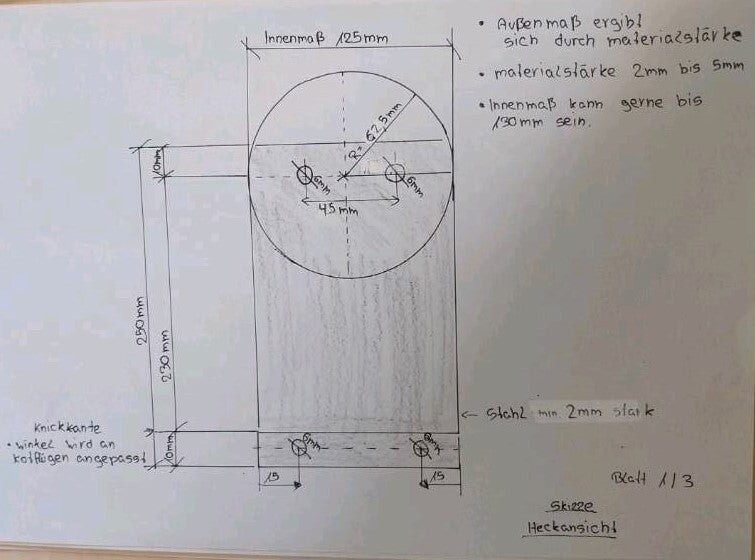 Innenmaß 125mm
• Außenmaß ergibt
sich durch materialstärke
• materialstärke 2mm bis 5mm
• Innenmaß kann gerne bis
130mm sein.
R= 62,5mm
10mm
6mm
6mm
45mm
250mm
230mm
← Stahl min 2mm stark
Knickkante
• winkel wird an
kotflügen angepasst
10mm
6mm
6mm
15
15
Blatt 1/3
Skizze
Heckansicht